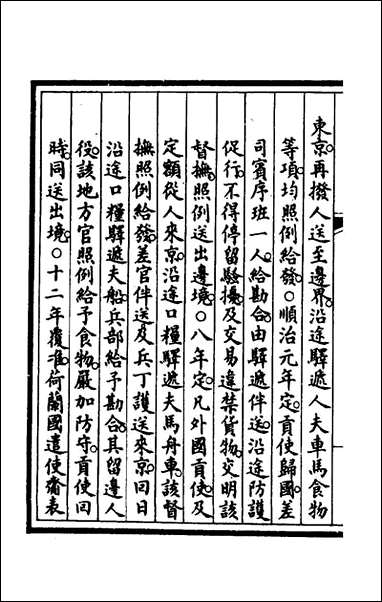 東京再撥人送至邊界沿途驛遞人夫車馬食物
等項均照例給發○順治元年定貢使歸國差
司賓序班一人給勘合由驛遞伴送沿途防護
促行不得停留騷擾及交易違禁貨物交明該
督撫照例送出邊境○八年定凡外國貢使及
定額從人來京沿途口糧驛遞夫馬舟車該督
撫照例給發差官伴送及兵丁護送來京回日
沿途口糧驛遞夫船兵部給予勘合其留邊人
役該地方官照例給予食物嚴加防守貢使回
時同送出境○十二年覆准荷蘭國遣使齎表